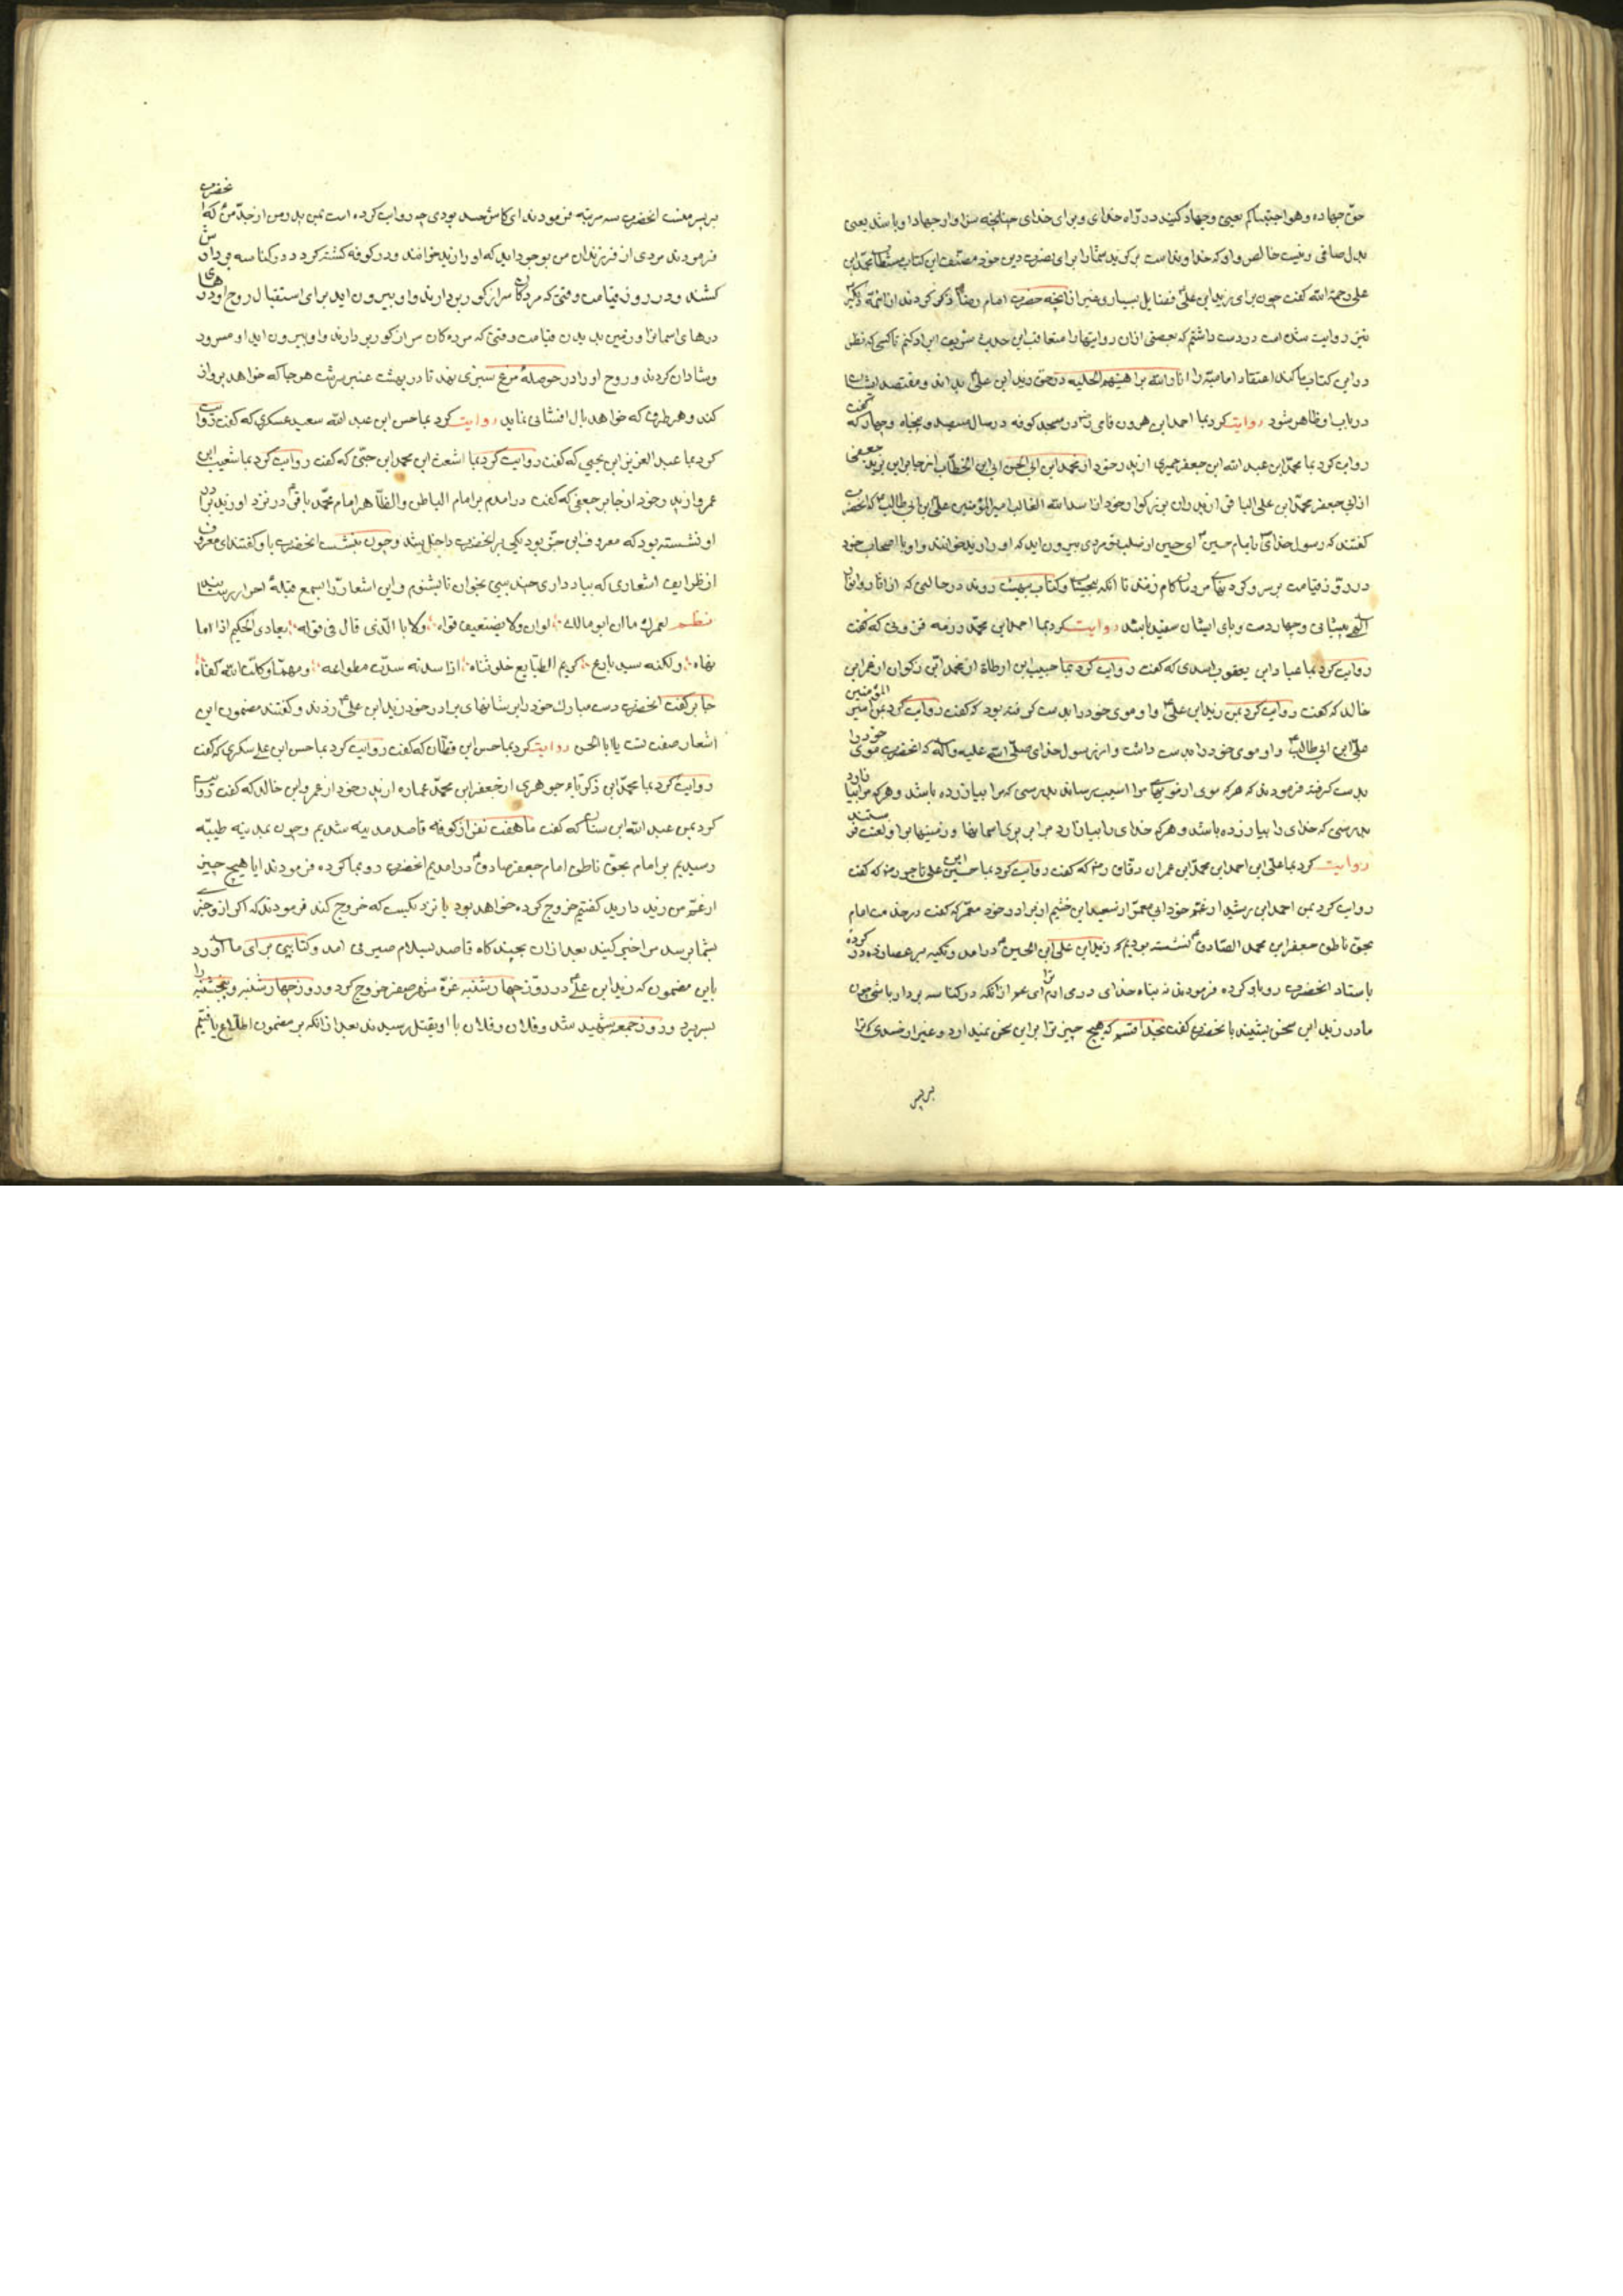 حق جهاده وهو اجتباکم یعنی وجهاد کنید در راه خدای وبرای خدای چنانچه سزاوار جهاد او باشد یعنی
بدل صافی ونیت خالص واو که خداوندست برگزید شما را برای نصرت دین خود مصنف این کتاب محمد ابن
علی رحمة الله گفت چون برای زید ابن علی فضایل بسیاری غیر از آنچه حضرت امام رضا ذکر کردند از ائمه دیگر
نیز روایت شده است دوست داشتم که بعضی از آن روایتها را متعاقب این حدیث شریف ایراد کنم تا کسی که نظر
در این کتاب ما کند اعتقاد امامیه را در حق زید ابن علی بداند
در باب او ظاهر شود روایت کرد بما احمد ابن هرون فامی در مسجد کوفه در سال سیصد و پنجاه و چهار که گفت
روایت کرد بما محمد ابن عبد الله ابن جعفر حمیری از پدر خود از محمد ابن ابی الحسن ابی الخطاب از جابر ابن یزید جعفی
از ابی جعفر محمد ابن علی الباقر از پدران بزرکوار خود از اسد الله الغالب امیر المؤمنین علی ابن ابی طالب که انحضرت
گفتند که رسول خدای با امام حسین ای حسین از صلب تو مردی بیرون اید که او را زید خوانند واو با اصحاب خود
در روز قیامت بر سر و کردنهای مردمان کام زنند تا انکه بیحساب وکتاب ببهشت روند در حالتی که
پیشانی وچهار دست وپای ایشان سفید باشد روایت کرد بما احمد ابن محمد رزمه قزوینی که گفت
روایت کرد بما عباد ابن یعقوب اسدی که گفت روایت کرد بما حبیب ابن ارطاة از محمد ابن ذکوان از عمرو ابن
خالد که گفت روایت کرد بمن زید ابن علی واو موی خود را بدست کرفته بود که گفت روایت کرد بمن امیر المؤمنین
علی ابن ابی طالب واو موی خود را بدست داشت واز رسول خدای صلی الله علیه وآله که انحضرت موی خود را
بدست کرفته فرمودند که هرکه موی از مویهای مرا اسیب رساند بدرستی که مرا بیازرده باشد وهرکه مرا بیازارد
بدرستی که خدای را بیازرده باشد وهرکه خدای را بیازارد مر او را پری اسمانها وزمینها بر او لعنت فرستند
روایت کرد بما علی ابن احمد ابن محمد ابن عمران دقاق رضه که گفت روایت کرد بما حسین ابن علی تاجر رضه که گفت
روایت کرد بمن احمد ابن رشید از عم خود ابی معمر از سعید ابن خثیم از برادر خود معمر که گفت در خدمت امام
بحق ناطق جعفر ابن محمد الصادق نشسته بودیم که زید ابن علی ابن الحسین درامد وتکیه بر عصا زده در کرده
باستاد انحضرت رو باو کرده فرمودند که پناه خدای در می ارم ترا ای عم از انکه در کناسه بر دار باشی چون
مادر زید این سخن بشنید با نحضرت گفت بخدا قسم که هیچ چیز ترا بر این سخن نمیدارد وغیر از حسدی که ترا
بر پس
بر پسر منست انحضرت سه مرتبه فرمودند ای کاش حسد بودی چه روایت کرده است بمن پدر من از جد من که انحضرت
فرمودند مردی از فرزندان من بوجود اید که او را زید خوانند ودر کوفه کشته کردد در کناسه بردارش
کشند ودر روز قیامت وقتی که مردکان سر از کور بردارند واو بیرون اید برای استقبال روح او درهای
درهای اسمانها وزمین بدین قیامت وقتی که مرده کان سر از کور بردارند واو بیرون اید او مسرور
وشادان کردند وروح او را در حوصله مرغ سبزی نهند تا در بهشت عنبر سرشت هر جا که خواهد پرواز
کند وهر طرف که خواهد بال افشانی نماید روایت کرد بما حسن ابن عبد الله سعید عسکری که گفت روایت
کرد بما عبد العزیز ابن یحیی که گفت روایت کرد بما اشعث ابن محمد ابن ضبی که گفت روایت کرد بما شعیب ابن
عمرو از پدر خود از جابر جعفی که گفت درامدم بر امام الباطن والظاهر امام محمد باقر در نزد او زید برادر
او نشسته بود که معروف ابن خربوذ مکی بر انحضرت داخل شد وچون بنشست انحضرت با او گفتند ای معروف
از ظرایف اشعاری که بیاد داری چند بیتی بخوان تا بشنوم واین اشعار را بسمع قبله احرار رسانید
نظم لعمرك ما ان ابو مالك ؛ بوان ولا بضعیف قواه ؛ ولا بالالد فی قوله ؛ یعادی الحکیم اذا ما
نهاه ؛ ولکنه سید بارع ؛ کریم الطبایع خلو ثناه ؛ اذا سدته سدت مطواعه ؛ ومهما وکلت الیه کفاه
جابر گفت انحضرت دست مبارك خود را بر شانهای برادر خود زید ابن علی زدند وکفتند مضمون این
اشعار صفت تست یا ابا الحسین روایت کرد بما حسن ابن قطان که گفت روایت کرد بما حسن ابن علی سکری که گفت
روایت کرد بما محمد ابن ذکریاء جوهری از جعفر ابن محمد عماره از پدر خود از عمرو ابن خالد که گفت روایت
کرد بمن عبد الله ابن سنان که گفت ما هفت نفر از کوفه قاصد مدینه شدیم وچون بمدینه طیبه
رسیدیم بر امام بحق ناطق امام جعفر صادق درامدیم انحضرت رو بما کرده فرمودند ایا هیچ چیز
از عم من زید دارید گفتیم خروج کرده خواهد بود یا نزدیکست که خروج کند فرمودند که اکر از او خبری
بشما برسد مرا خبر کنید بعد از ان بچندکاه قاصد بسلام صیرفی امد وکتابتی برای ما آورد
باین مضمون که زید ابن علی در روز چهارشنبه غرة شهر صفر خروج کرد وروز چهارشنبه وپنجشنبه را
بسر برد وروز جمعه شهید شد وفلان وفلان با او بقتل رسیدند بعد از انکه بر مضمون اطلاع یافتیم